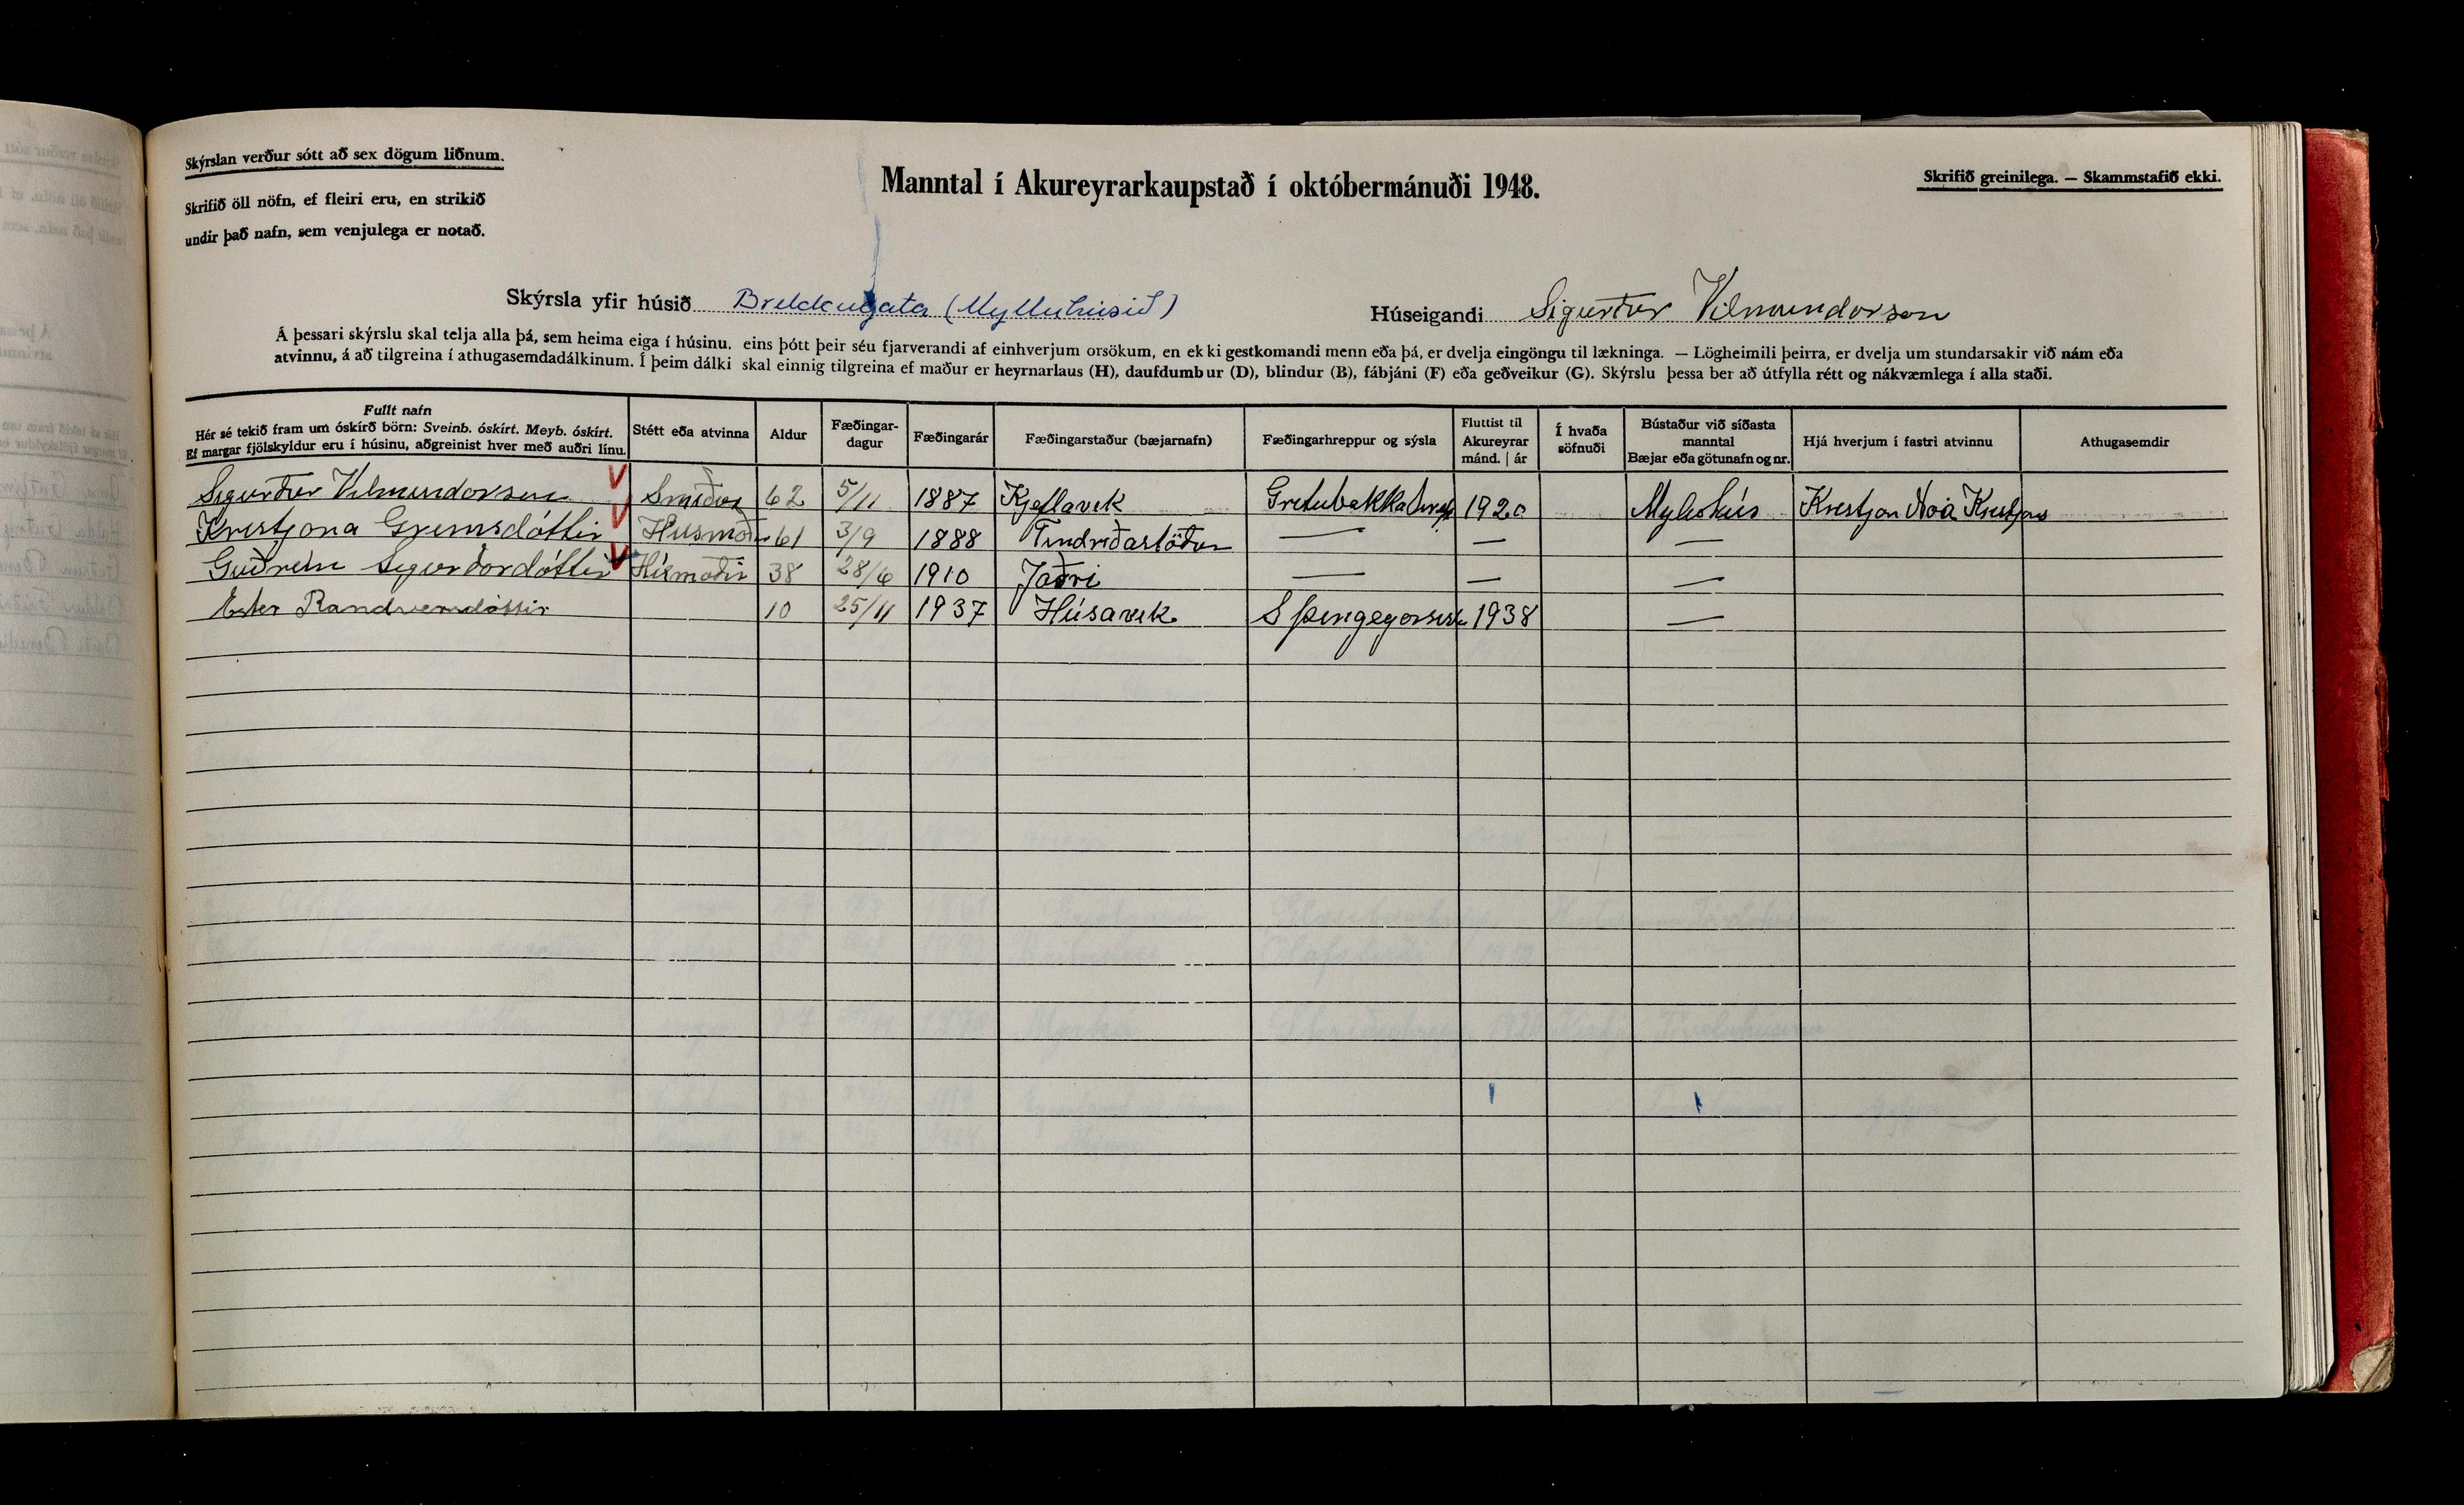 Skýrslan verður sótt að sex dögum liðnum.
Skrifið öll nöfn, ef fleiri eru, en strikið
undir það nafn, sem venjulega er notað.
Manntal í Akureyrarkaupstað í októbermánuði 1948.
Skrifið greinilega. — Skammstafið ekki.
Skýrsla yfir húsið Brekkugata (Mylluhúsið)
Húseigandi Sigurður Vilmundarson
Á þessari skýrslu skal telja alla þá, sem heima eiga í húsinu, eins þótt þeir séu fjarverandi af einhverjum orsökum, en ekki gestkomandi menn eða þá, er dvelja eingöngu til lækninga. — Lögheimili þeirra, er dvelja um stundarsakir við nám eða
atvinnu, á að tilgreina í athugasemdadálkinum. Í þeim dálki skal einnig tilgreina ef maður er heyrnarlaus (H), daufdumbur (D), blindur (B), fábjáni (F) eða geðveikur (G). Skýrslu þessa ber að útfylla rétt og nákvæmlega í alla staði.
Fullt nafn
Hér sé tekið fram um óskírð börn: Sveinb. óskírt. Meyb. óskírt.
Ef margar fjölskyldur eru í húsinu, aðgreinist hver með auðri línu.
Stétt eða atvinna
Aldur
Fæðingar-
dagur
Fæðingarár
Fæðingarstaður (bæjarnafn)
Fæðingarhreppur og sýsla
Fluttist til
Akureyrar
mánd. | ár
Í hvaða
söfnuði
Bústaður við síðasta
manntal
Bæjar eða götunafn og nr.
Hjá hverjum í fastri atvinnu
Athugasemdir
Sigurður Vilmundarson Smiður 62 5/11 1887 Kjeflavik Gritubakkahrep 1920 Myluhús Kristjan Noa Kristjans
Kristjona Grimsdóttir Husmoðir 61 3/9 1888 Tindriðastöðum — — —
Guðrún Sigurðardóttir Húsmoðir 38 28/6 1910 Jaðri — — —
Ester Randversdóttir 10 25/11 1937 Húsavik S þingeyarsislu 1938 —